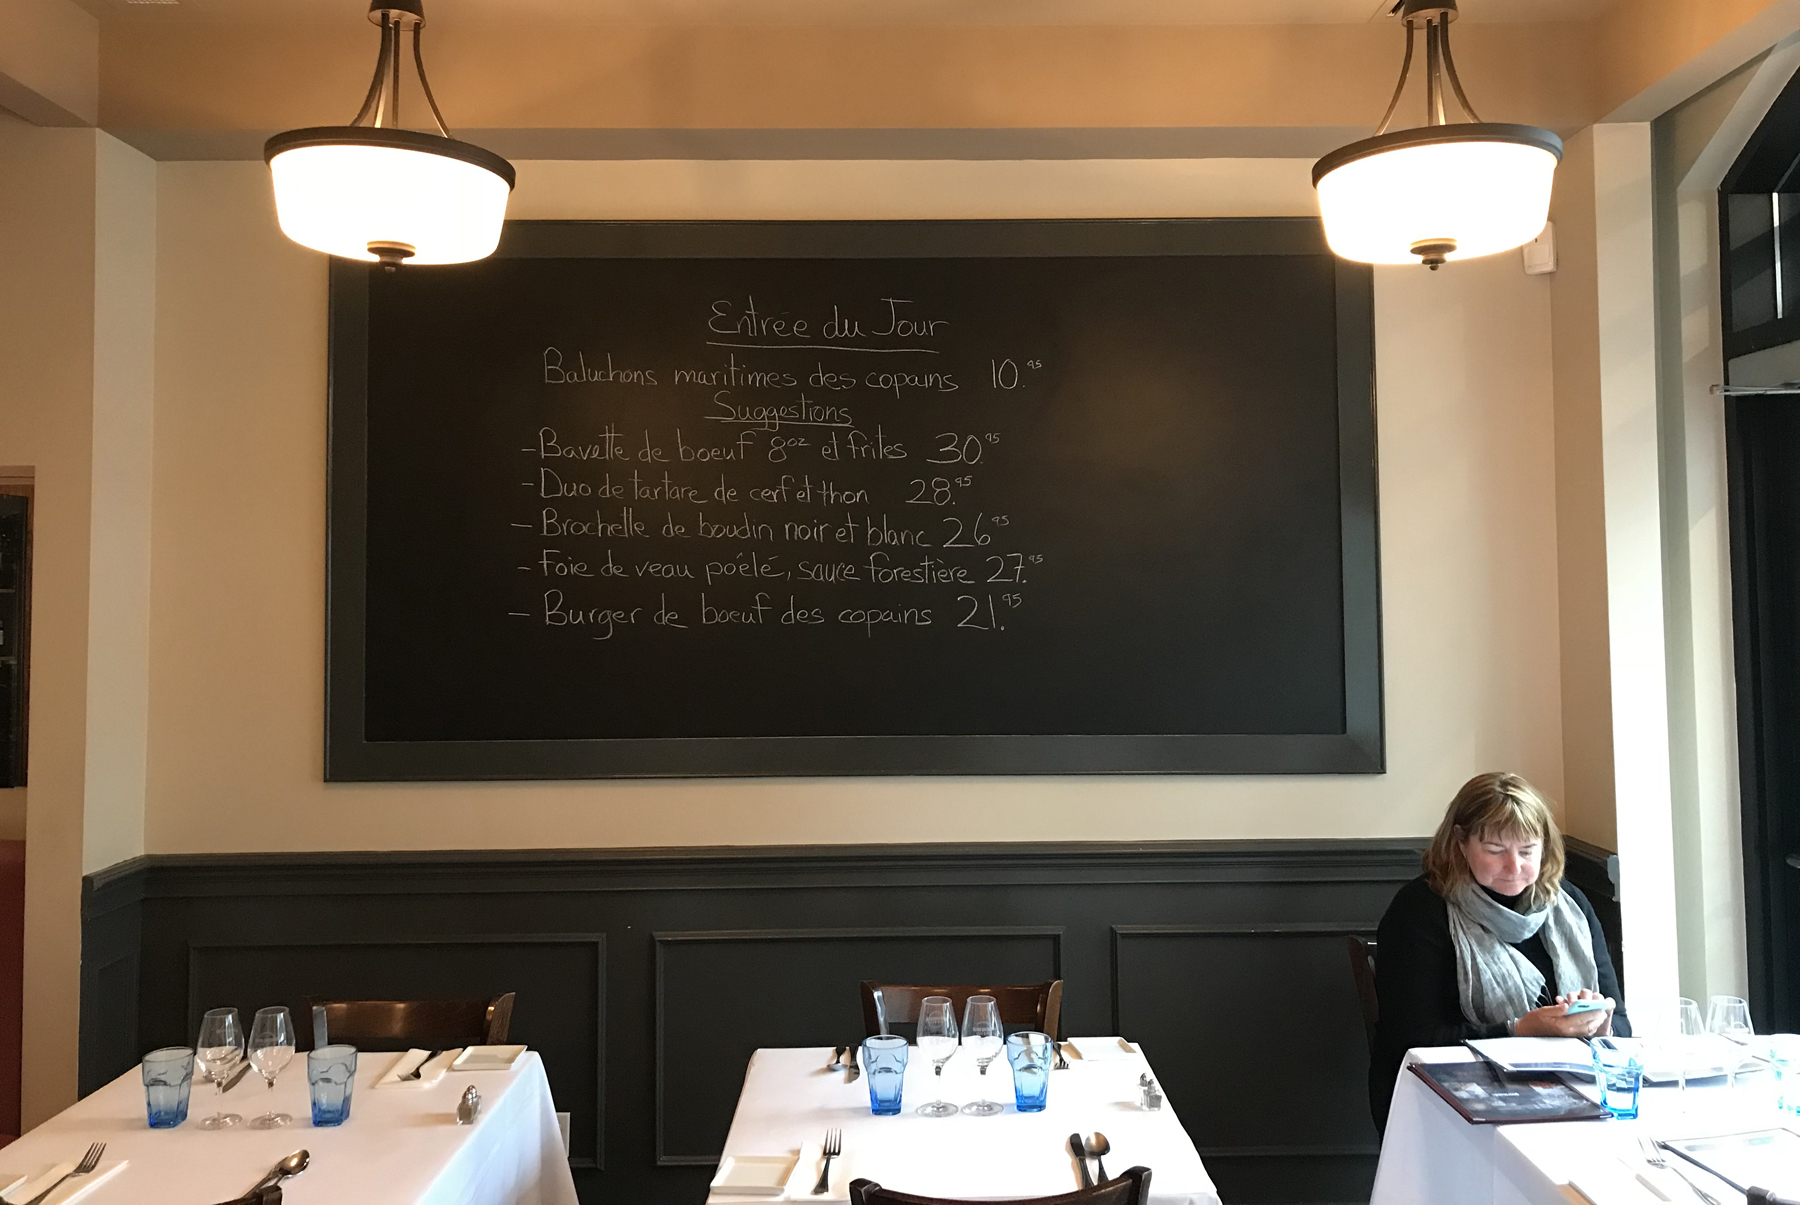 Entrée du Jour
Baluchons maritimes des copains 10.95
Suggestions
- Bavette de boeuf 8oz et frites 30.95
- Duo de tartare de cerf et thon 28.95
- Brochette de boudin noir et blanc 26.95
- Foie de veau poélé, sauce forestière 27.95
- Burger de boeuf des copains 21.95